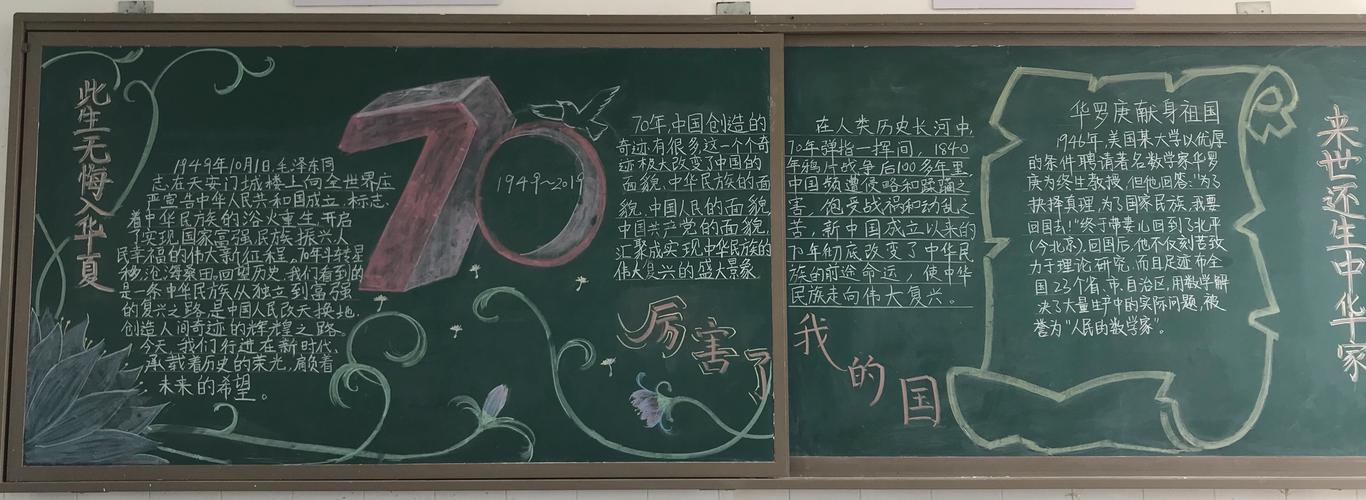 此生无悔入华夏
1949年10月1日,毛泽东同
志在天安门城楼上向全世界庄
严宣告中华人民共和国成立,标志
着中华民族的浴火重生,开启
了实现国家富强,民族振兴,人
民幸福的伟大新征程。70年斗转星
移,沧海桑田。回望历史,我们看到的
是一条中华民族从独立到富强
的复兴之路,是中国人民改天换地,
创造人间奇迹的辉煌之路。
今天,我们行进在新时代,
承载着历史的荣光,肩负着
未来的希望。
70
1949~2019
70年,中国创造的
奇迹有很多,这一个个奇
迹极大改变了中国的
面貌,中华民族的面
貌,中国人民的面貌,
中国共产党的面貌,
汇聚成实现中华民族的
伟大复兴的盛大景象
厉害了
在人类历史长河中,
70年弹指一挥间,1840
年鸦片战争后100多年里,
中国频遭侵略和蹂躏之
害,饱受战祸和动乱之
苦,新中国成立以来的
70年彻底改变了中华民
族的前途命运,使中华
民族走向伟大复兴。
我的国
华罗庚献身祖国
1946年,美国某大学以优厚
的条件聘请著名数学家华罗
庚为终生教授,但他回答:"为了
抉择真理,为了国家民族,我要
回国去!"终于带妻儿回到了北平
(今北京)。回国后,他不仅刻苦致
力于理论研究,而且足迹布全
国23个省、市、自治区,用数学解
决了大量生产中的实际问题,被
誉为"人民的数学家"。
来世还生中华家